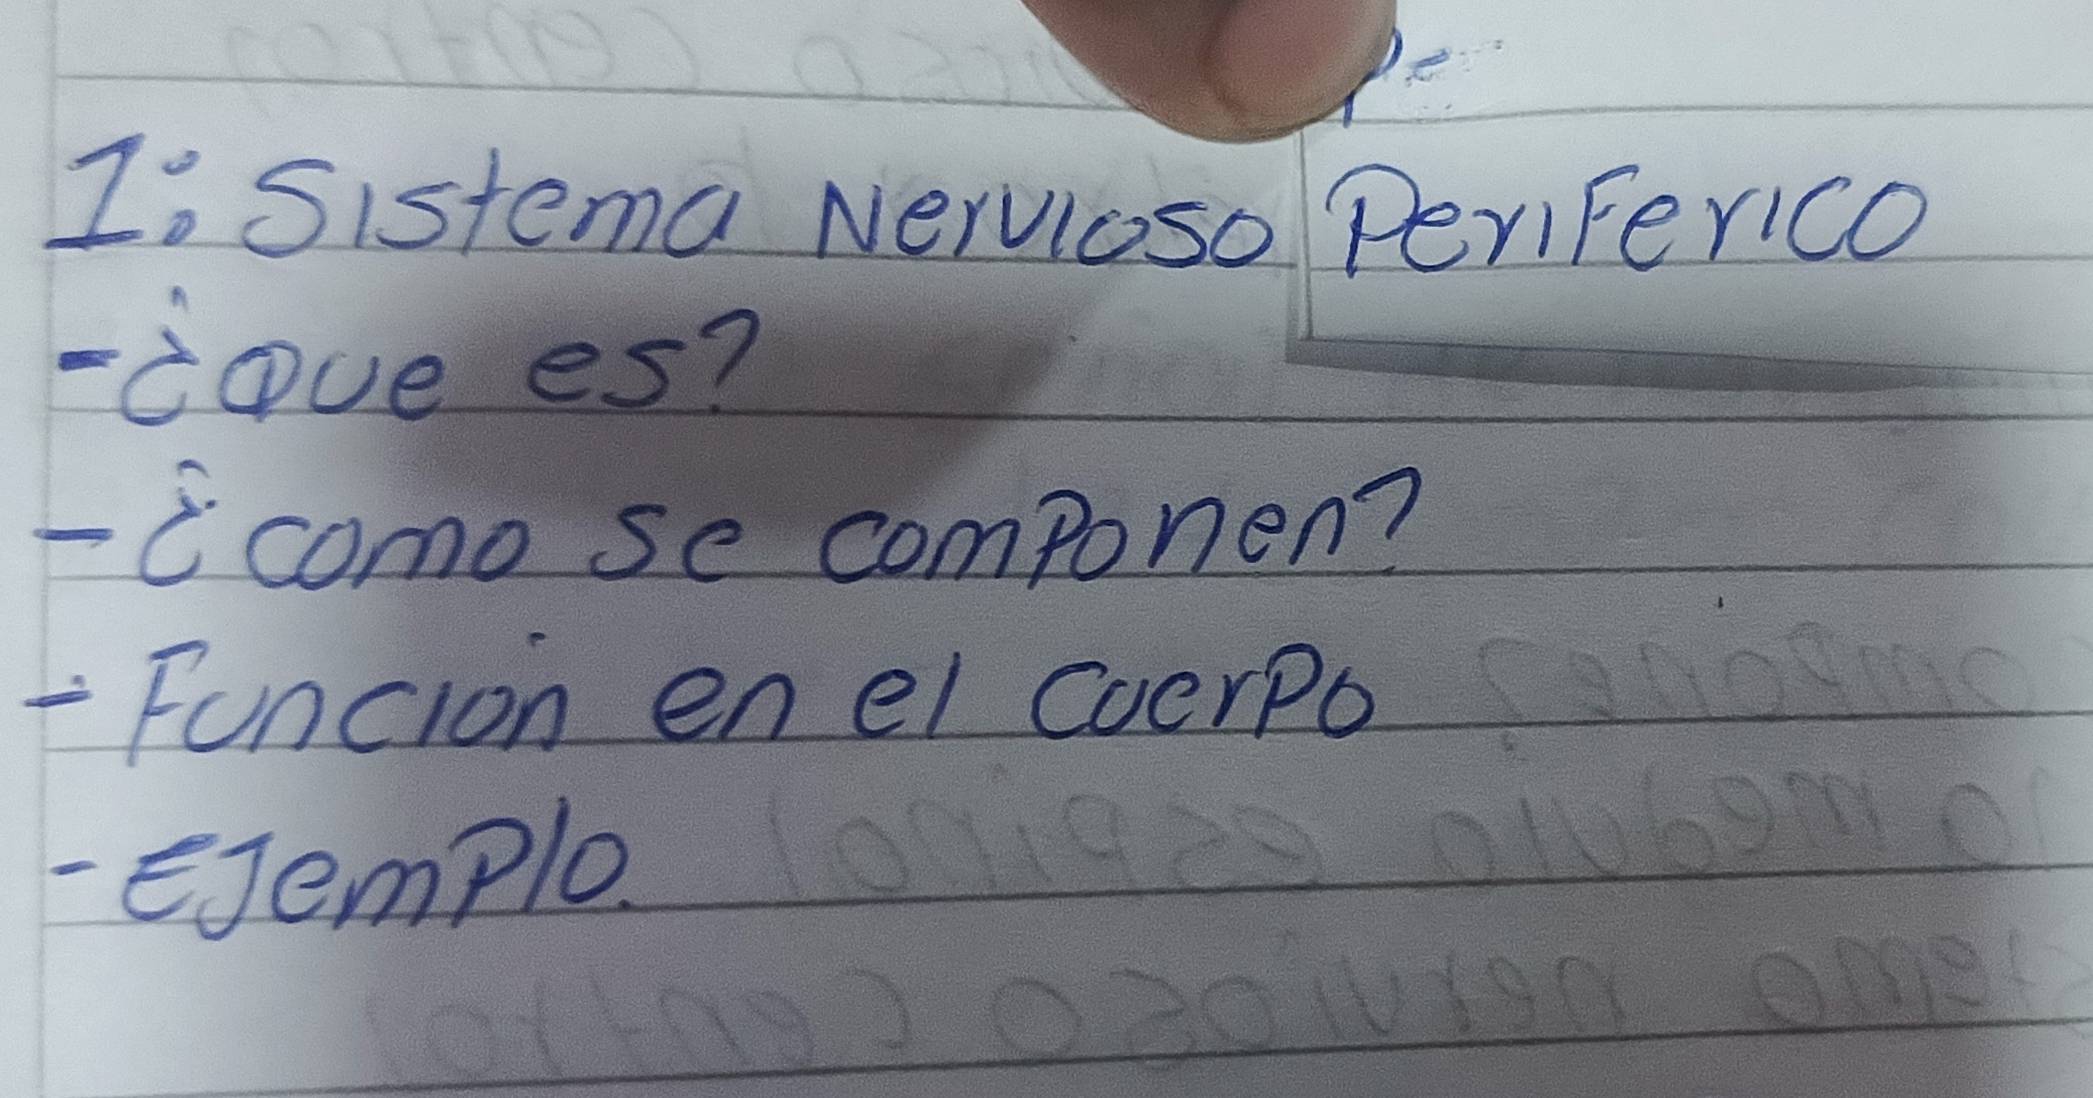 1: Sistema Nervioso Periferico
-¿Que es?
-¿como se componen?
-Función en el cuerpo
-Ejemplo.